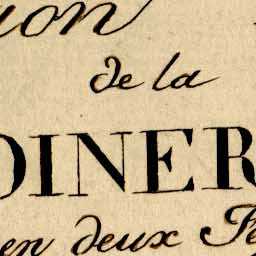 ion
de la
DINER
en deux Pa